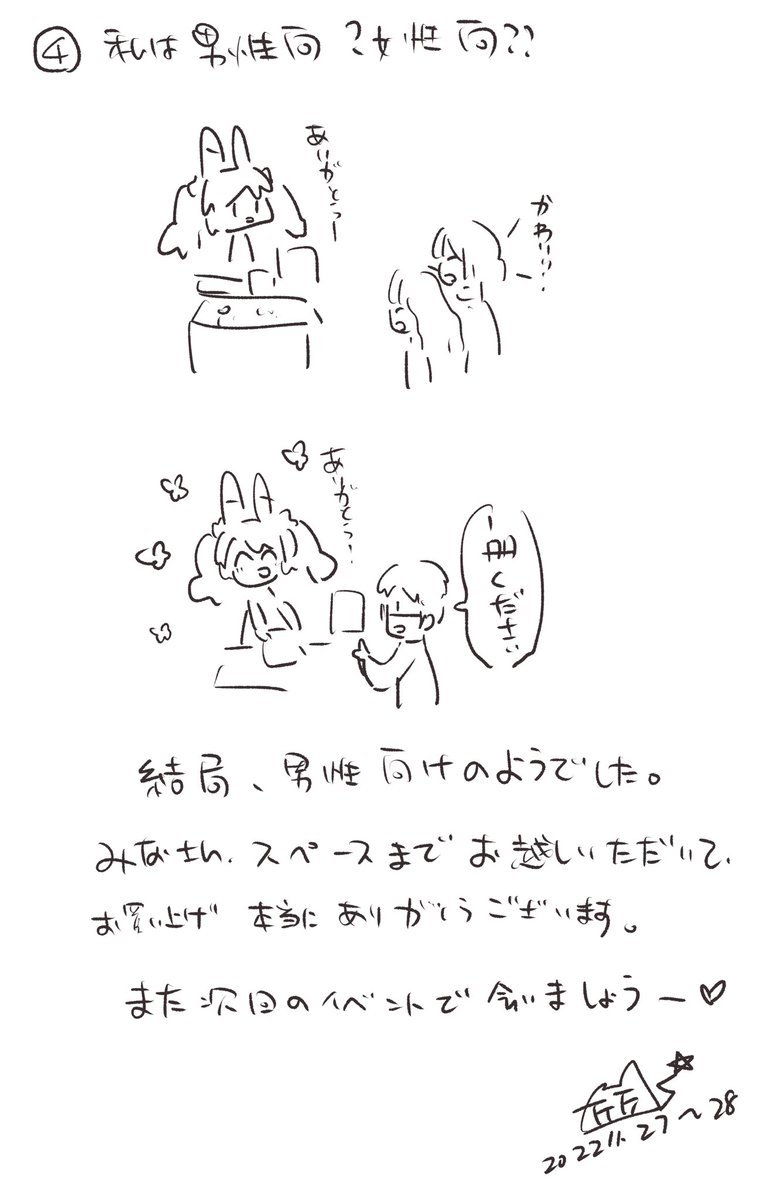 ④ 私は男性向?女性向??
ありがとうー
かわいい…
ありがとう!
一冊ください
結局、男性向けのようでした。
みなさん、スペースまでお越しいただいて、
お買い上げ 本当にありがとうございます。
また次回のイベントで会いましょうー♡
2022 11.27〜28